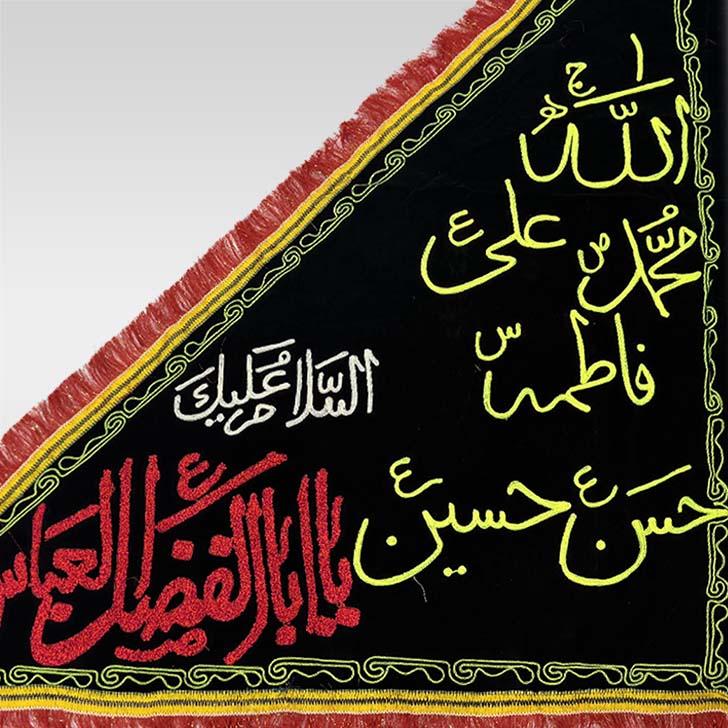 الله ج
محمد ص علی ع
فاطمه س
السلام علیک
حسن ع حسین ع
یا اباالفضل العباس ع